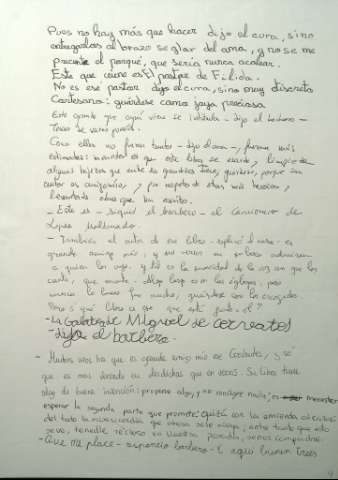 Pues no hay más que hacer dijo el cura, sino
entregarlos al brazo seglar del ama, y no se me
pregunte el porqué, que sería nunca acabar.
Este que viene es El pastor de Fílida.
No es ese pastor dijo el cura, sino muy discreto
Cortesano: guárdese como joya preciosa
Este grande que aquí viene se intitula - dijo el barbero -
Tesoro de varias poesías.
Como ellas no fueran tantas - dijo el cura -, fueran más
estimadas: menester es que este libro se escarde y limpie de
algunas bajezas que entre sus grandezas tiene; guárdese, porque su
autor es amigo mío, y por respeto de otras más heroicas y
levantadas obras que ha escrito.
- Este es - siguió el barbero - el Cancionero de
López Maldonado.
- También el autor de ese libro - replicó el cura - es
grande amigo mío, y sus versos en su boca admiran
a quien los oye, y tal es la suavidad de la voz con que los
canta, que encanta. Algo largo es en las églogas, pero
nunca lo bueno fue mucho; guárdese con los escogidos.
Pero ¿qué libro es ese que está junto a él?
- La Galatea de Miguel de Cervantes
- dijo el barbero.
- Muchos años ha que es grande amigo mío ese Cervantes, y sé
que es más versado en desdichas que en versos. Su libro tiene
algo de buena invención: propone algo, y no concluye nada; es menester
esperar la segunda parte que promete: quizá con la enmienda alcanzará
del todo la misericordia que ahora se le niega; entre tanto que esto
se ve, tenedle recluso en vuestra posada, señor compadre.
- Que me place - respondió el barbero -. Y aquí vienen tres